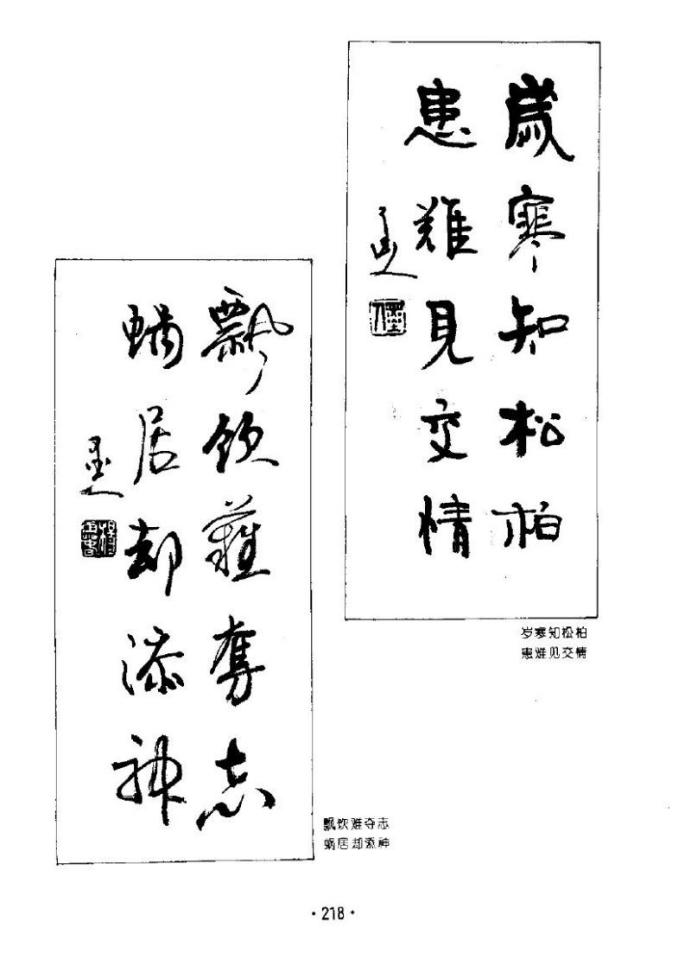 歲寒知松柏
患難見交情
岁寒知松柏
患难见交情
飘饮難奪志
蝸居却添神
飘饮难夺志
蜗居却添神
·218·